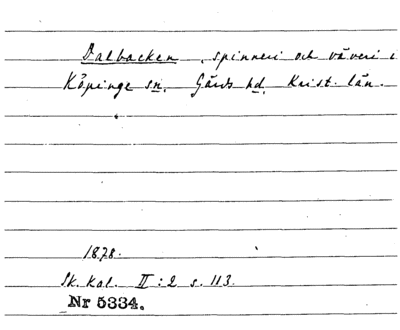 Dalbacken, spinneri och väveri i
Köpinge sn. Gärds hd. Krist. län.
1878.
Sk. kal. II:2 s. 113.
Nr 5334.